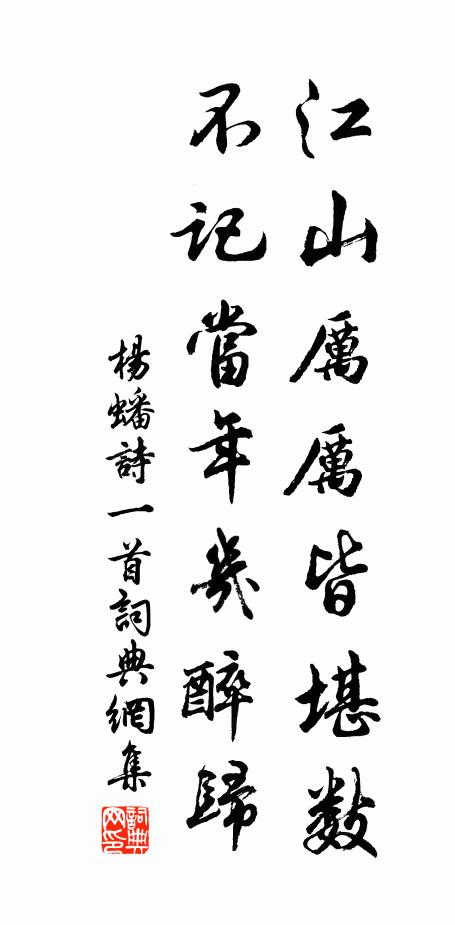 江山厲厲皆堪數
不記當年幾醉歸
楊蟠詩一首詞典網集
詞典網印